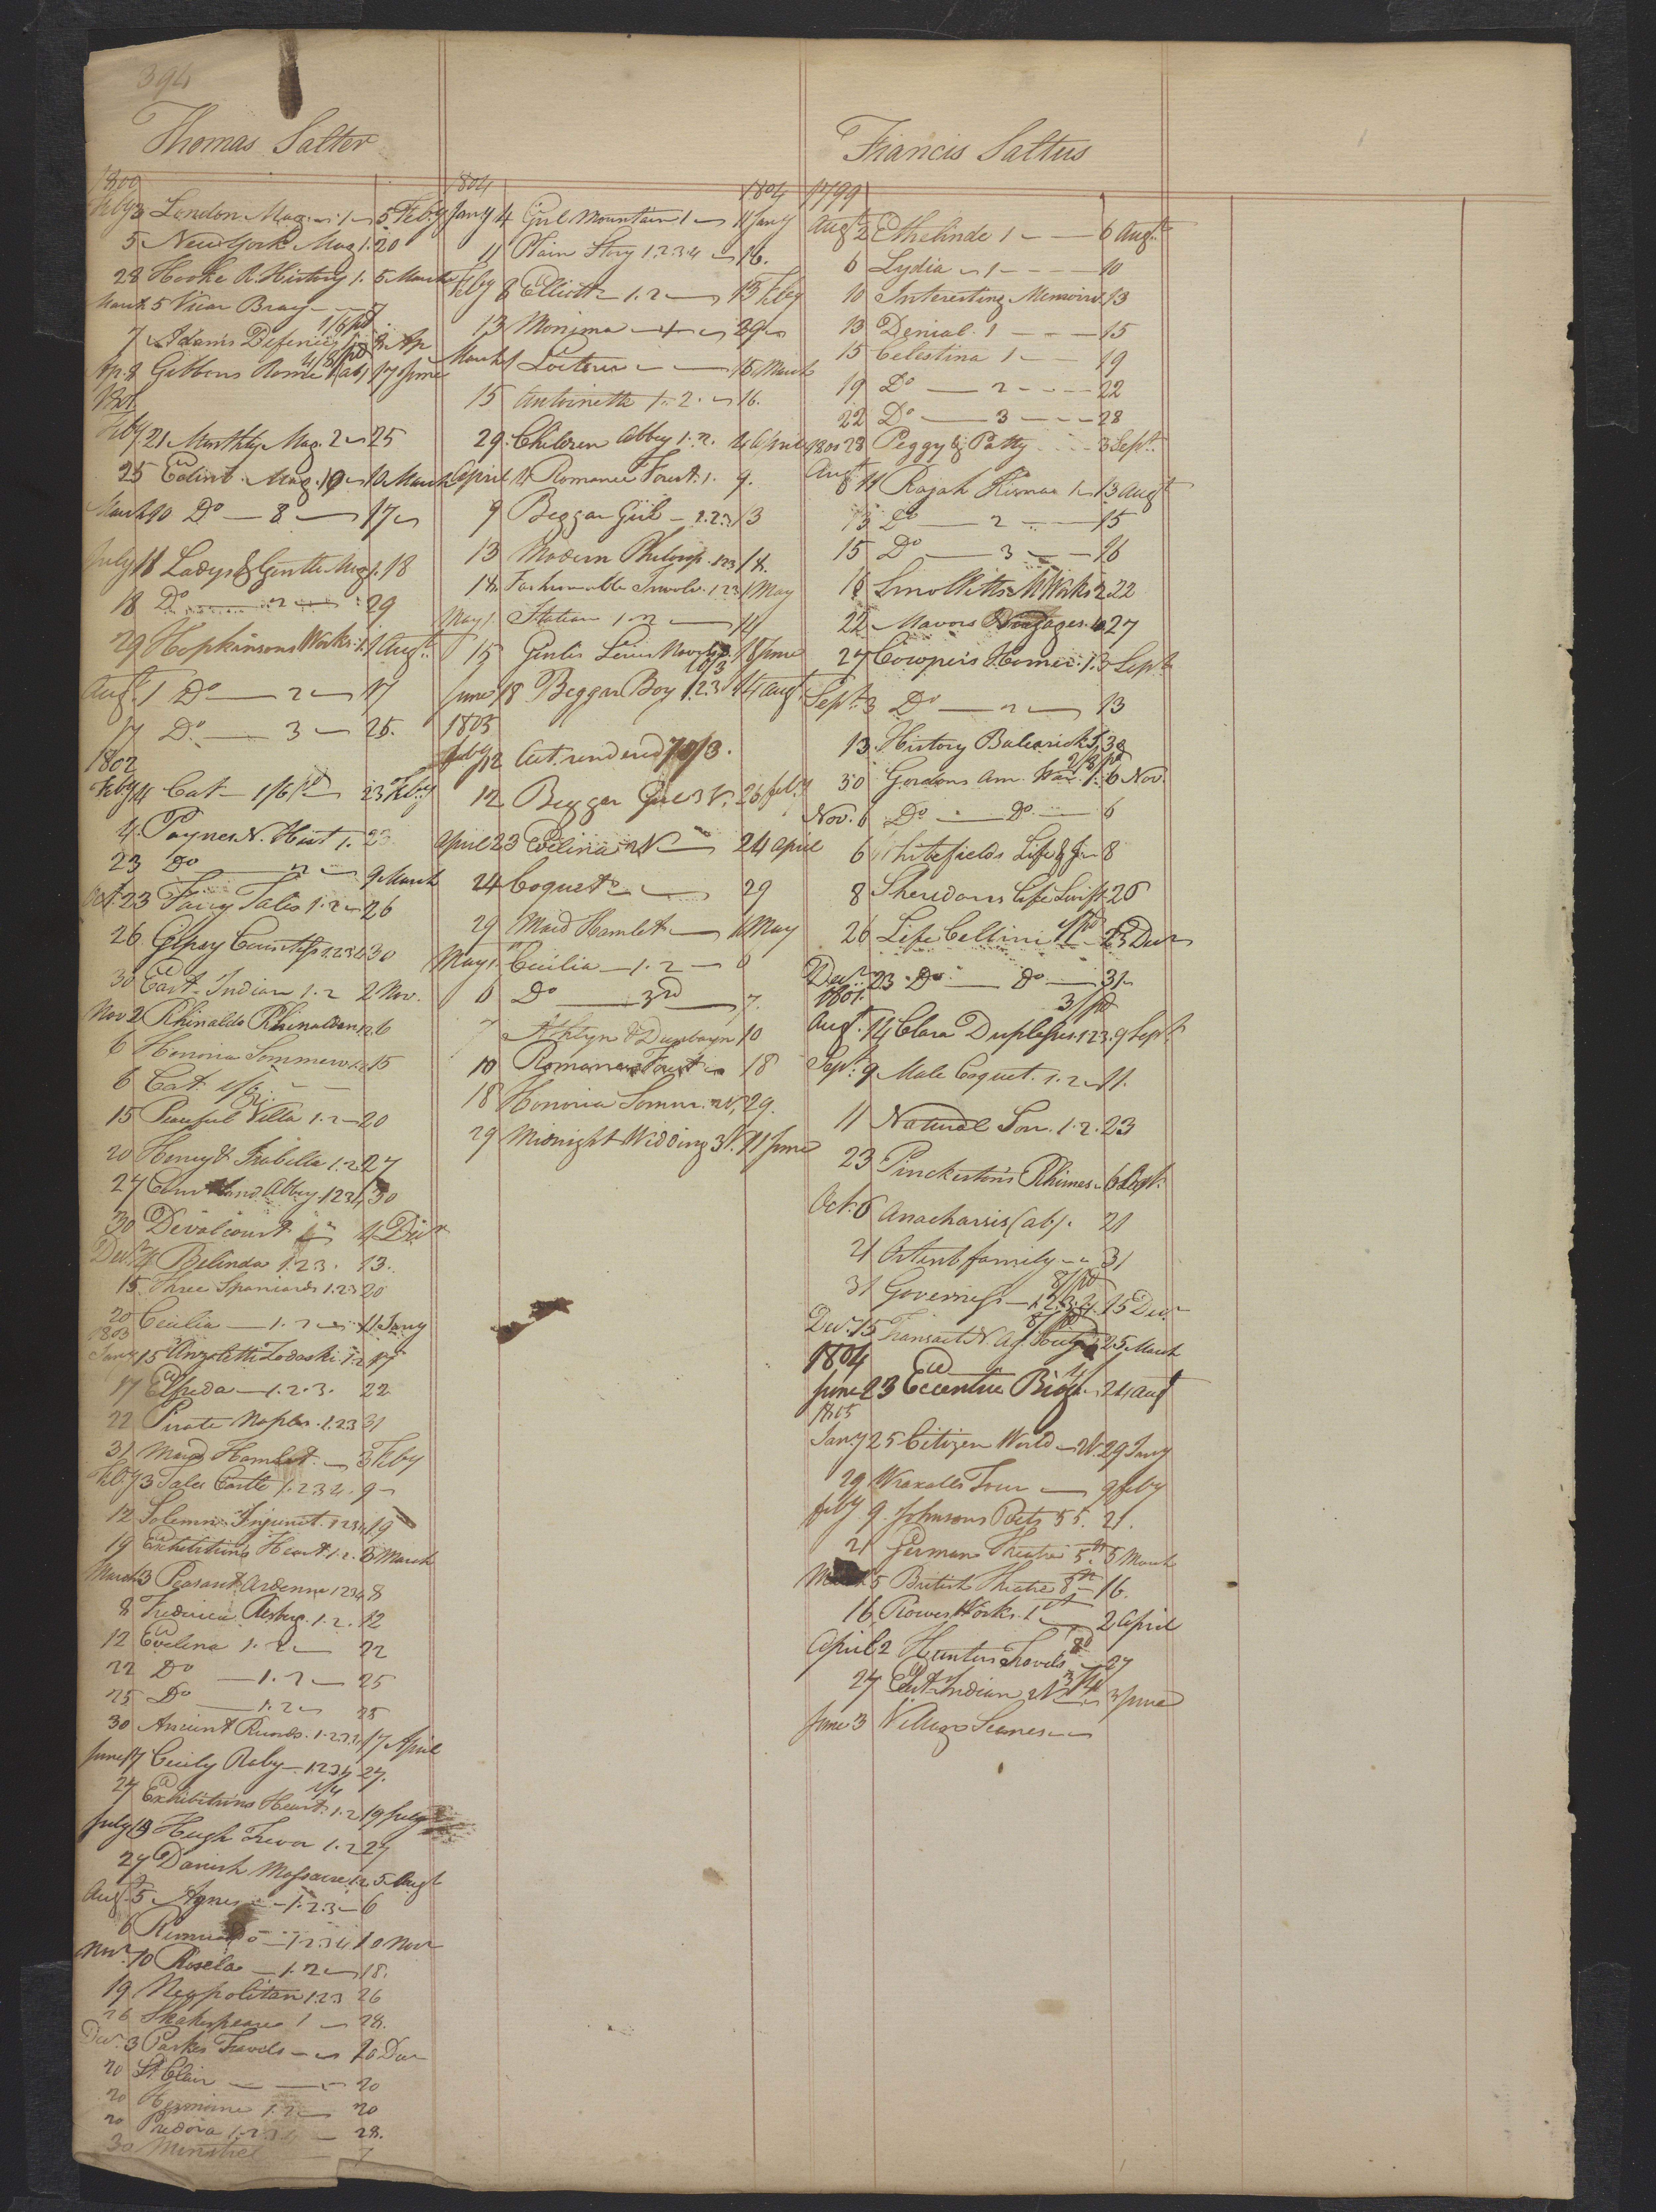 394
Thomas Salter
1800
Feby 3 London Mag. 1 5 Feby
5 New York Mag 1. 20
28 Hooke R. History 1. 5 March
March 5 Vicar Bray 7
1/6 pd
7 Adams Defence 8 Ap
4/8 pd
Ap 8 Gibbons Rome 1 (ab) 17 June
1801
Feby 21 Monthly Mag. 2 25
25 Edinb. Mag. 10 March
March 10 Do 8 17
July 11 Ladys & Gentle Mag 1. 18
18 Do 2 29
29 Hopkinsons Works 1. 1 Augt
Augt 1 Do 2 17
17 Do 3 25.
1802
Feby 4 Cat 1/6 pd 23 Feby
4 Paynes N. Hist 1. 23
23 Do 2 9 March
Oct 23 Fairy Tales 1.2 26
26 Gipsy Countess 1.2.3.4 30
30 East Indian 1.2 2 Nov.
Nov 2 Rhinaldo Rhinaldini 1.2 6
6 Honoria Sommerv. 1.2 15
6 Cat
15 Peaceful Villa 1.2 20
20 Henry & Isabella 1.2 27
27 Abbey 1 2 3 4 30
30 Devalcourt 4 Decr
Decr 4 Belinda 1.2.3. 13.
15 Three Spaniards 1.2.3 20
20 Cecilia 1.2 11 Jany
1803
Jany 15 Anzoletti Zodaski 1.2 17
17 Elfreda 1.2.3. 22
22 Pirate Naples 1.2.3 31
31 Maid Hamlet 3 Feby
Feby 3 Tales Castle 1.2.3.4. 9
12 Solemn Injunct. 1 2 3 4 19
19 Exhibitions Heart 1.2. 3 March
March 3 Peasant Ardenne 1 2 3 4 8
8 Frederica Risberg. 1.2. 12
12 Evelina 1.2 22
22 Do 1.2 25
25 Do 1.2 25
30 Ancient Records. 1.2.3.4 17 April
June 17 Cecily Raby 1.2.3.4 27.
27 Exhibitions Heart 1.2 19 July
July 19 Hugh Trevor 1.2 27
27 Danish Massacre 1.2 5 Augt
Augt 5 Agnes 1.2.3 6
6 1.2.3.4 10 Novr
Novr 10 Rosela 1.2 18.
19 Neapolitan 1.2.3 26
26 Shakespeare 1 28.
Decr 3 Parks Travels 20 Decr
20 St. Clair 20
20 Hermione 1.2 20
20 28.
30 Minstrel 7
1804 1804
Jany 4 Girl Mountain 1 11 Jany
11 Plain Story 1.2.3.4 16.
Feby 8 Elliott 1.2 13 Feby
13 Monima 29
March 1 Loiterer 15 March
15 Antoinette 1.2. 16.
29. Children Abbey 1.2. 4 April
April 4 Romance Forest 1. 9.
9 Beggar Girl 1.2.3 13
13 Modern Philosop. 1 2 3 18.
18 Fashionable Involv. 1 2 3 1 May
May 1 Statira 1.2 14
15 Genlis Series Novels 18 June
June 18 Beggar Boy 1.2.3 14 Augt
1805
Feby 12 Act. rendered 10/3.
12 Beggar Girl 3 V. 26 Feby
April 23 Evelina 2V 24 April
24 Coquette 29
29 Maid Hamlet 1 May
May 1 Cecilia 1.2 6
6 Do 3rd 7.
7 Athlyn & Dunbayn 10
10 Romance Forest 18
18 Honoria Somm. 2V, 29.
29 Midnight Wedding 3V. 11 June
Francis Saltus
1799
Augt 2 Ethelinde 1 6 Augt
6 Lydia 1 10
10 Interesting Memoirs 13
13 Denial. 1 15
15 Celestina 1 19
19 Do 2 22
22 Do 3 28
28 Peggy & Patty 3 Sept.
1800
Augt 11 Rajah Kisnaa 1 13 Augt
13 Do 2 15
15 Do 3 16
16 Smolletts M Works 2 22
22 Mavors Voyages. 27
27 Cowpers Homer 1. 3 Sept
Sept 3 Do 2 13
13 History Balearick I. 30
2/8 pd
30 Gordons Am. War. 1. 6 Nov.
Nov. 6 Do Do 6
6 Whitefields Life & 8
8 Sheredans Life Swift 26
26 Life Cellini 23 Decr
Decr 23 Do Do 31
1801. 3/ pd
Augt. 14 Clara Duplessis. 1 2 3. 9 Sept.
Sept. 9 Male Coquet. 1.2 11.
11 Natural Son. 1.2. 23
23 Pinckertons Rhimes 6 Sept.
Oct 6 Anacharsis (ab). 21
21 Artent family 31
8/ pd
31 Governess 1.2.3.4. 15 Decr
Decr 15 Transact N. Ag. 25 March
1804
June 23 Eccentric Biog. 24 Augt
1805
Jany 25 Citizen World 29 Jany
29 Wraxalls Tour 9 Feby
Feby 9. Johnsons Poets 55. 21.
21 German Theatre 5th. 5 March
March 5 British Theatre 8th 16.
16 Rowes Works. 1st 2 April
April 2 Hunters Travels 27
27 East Indian 2V 3 June
June 3 Village Scenes